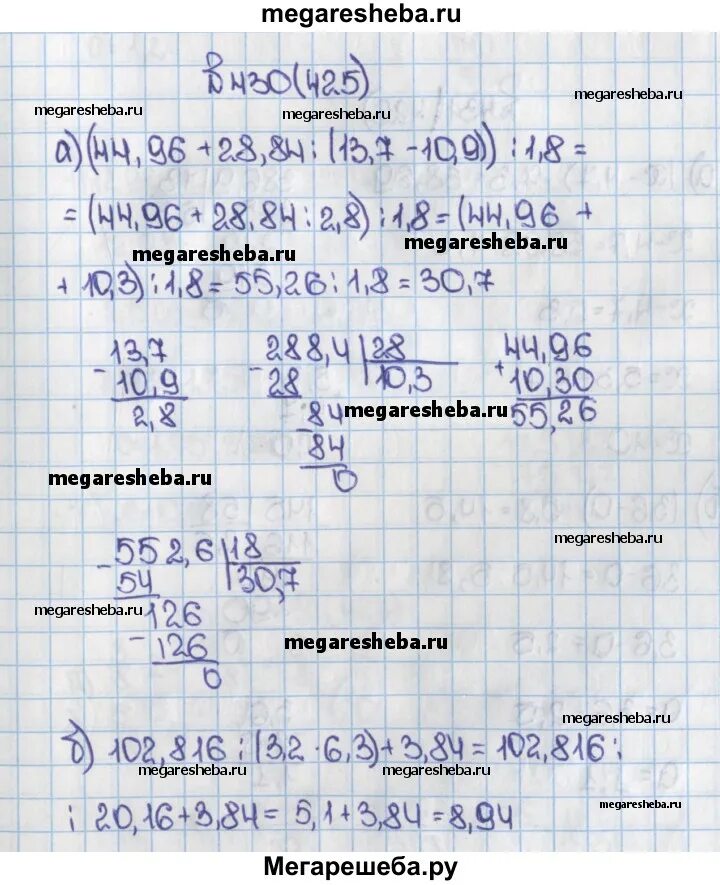 megaresheba.ru
В 430(425)
megaresheba.ru megaresheba.ru
а) (44,96 + 28,84 : (13,7 - 10,9)) : 1,8 =
= (44,96 + 28,84 : 2,8) : 1,8 = (44,96 +
megaresheba.ru megaresheba.ru
+ 10,3) : 1,8 = 55,26 : 1,8 = 30,7
13,7 288,4 28 44,96
- 10,9 - 28 10,3 + 10,30
2,8 - 84 megaresheba.ru 55,26
84
megaresheba.ru 0
megaresheba.ru
- 552,6 18
54 30,7
megaresheba.ru 126
- 126 megaresheba.ru
0
megaresheba.ru
б) 102,816 : (3,2 · 6,3) + 3,84 = 102,816 :
megaresheba.ru megaresheba.ru
: 20,16 + 3,84 = 5,1 + 3,84 = 8,94
megaresheba.ru
Мегарешеба.ру